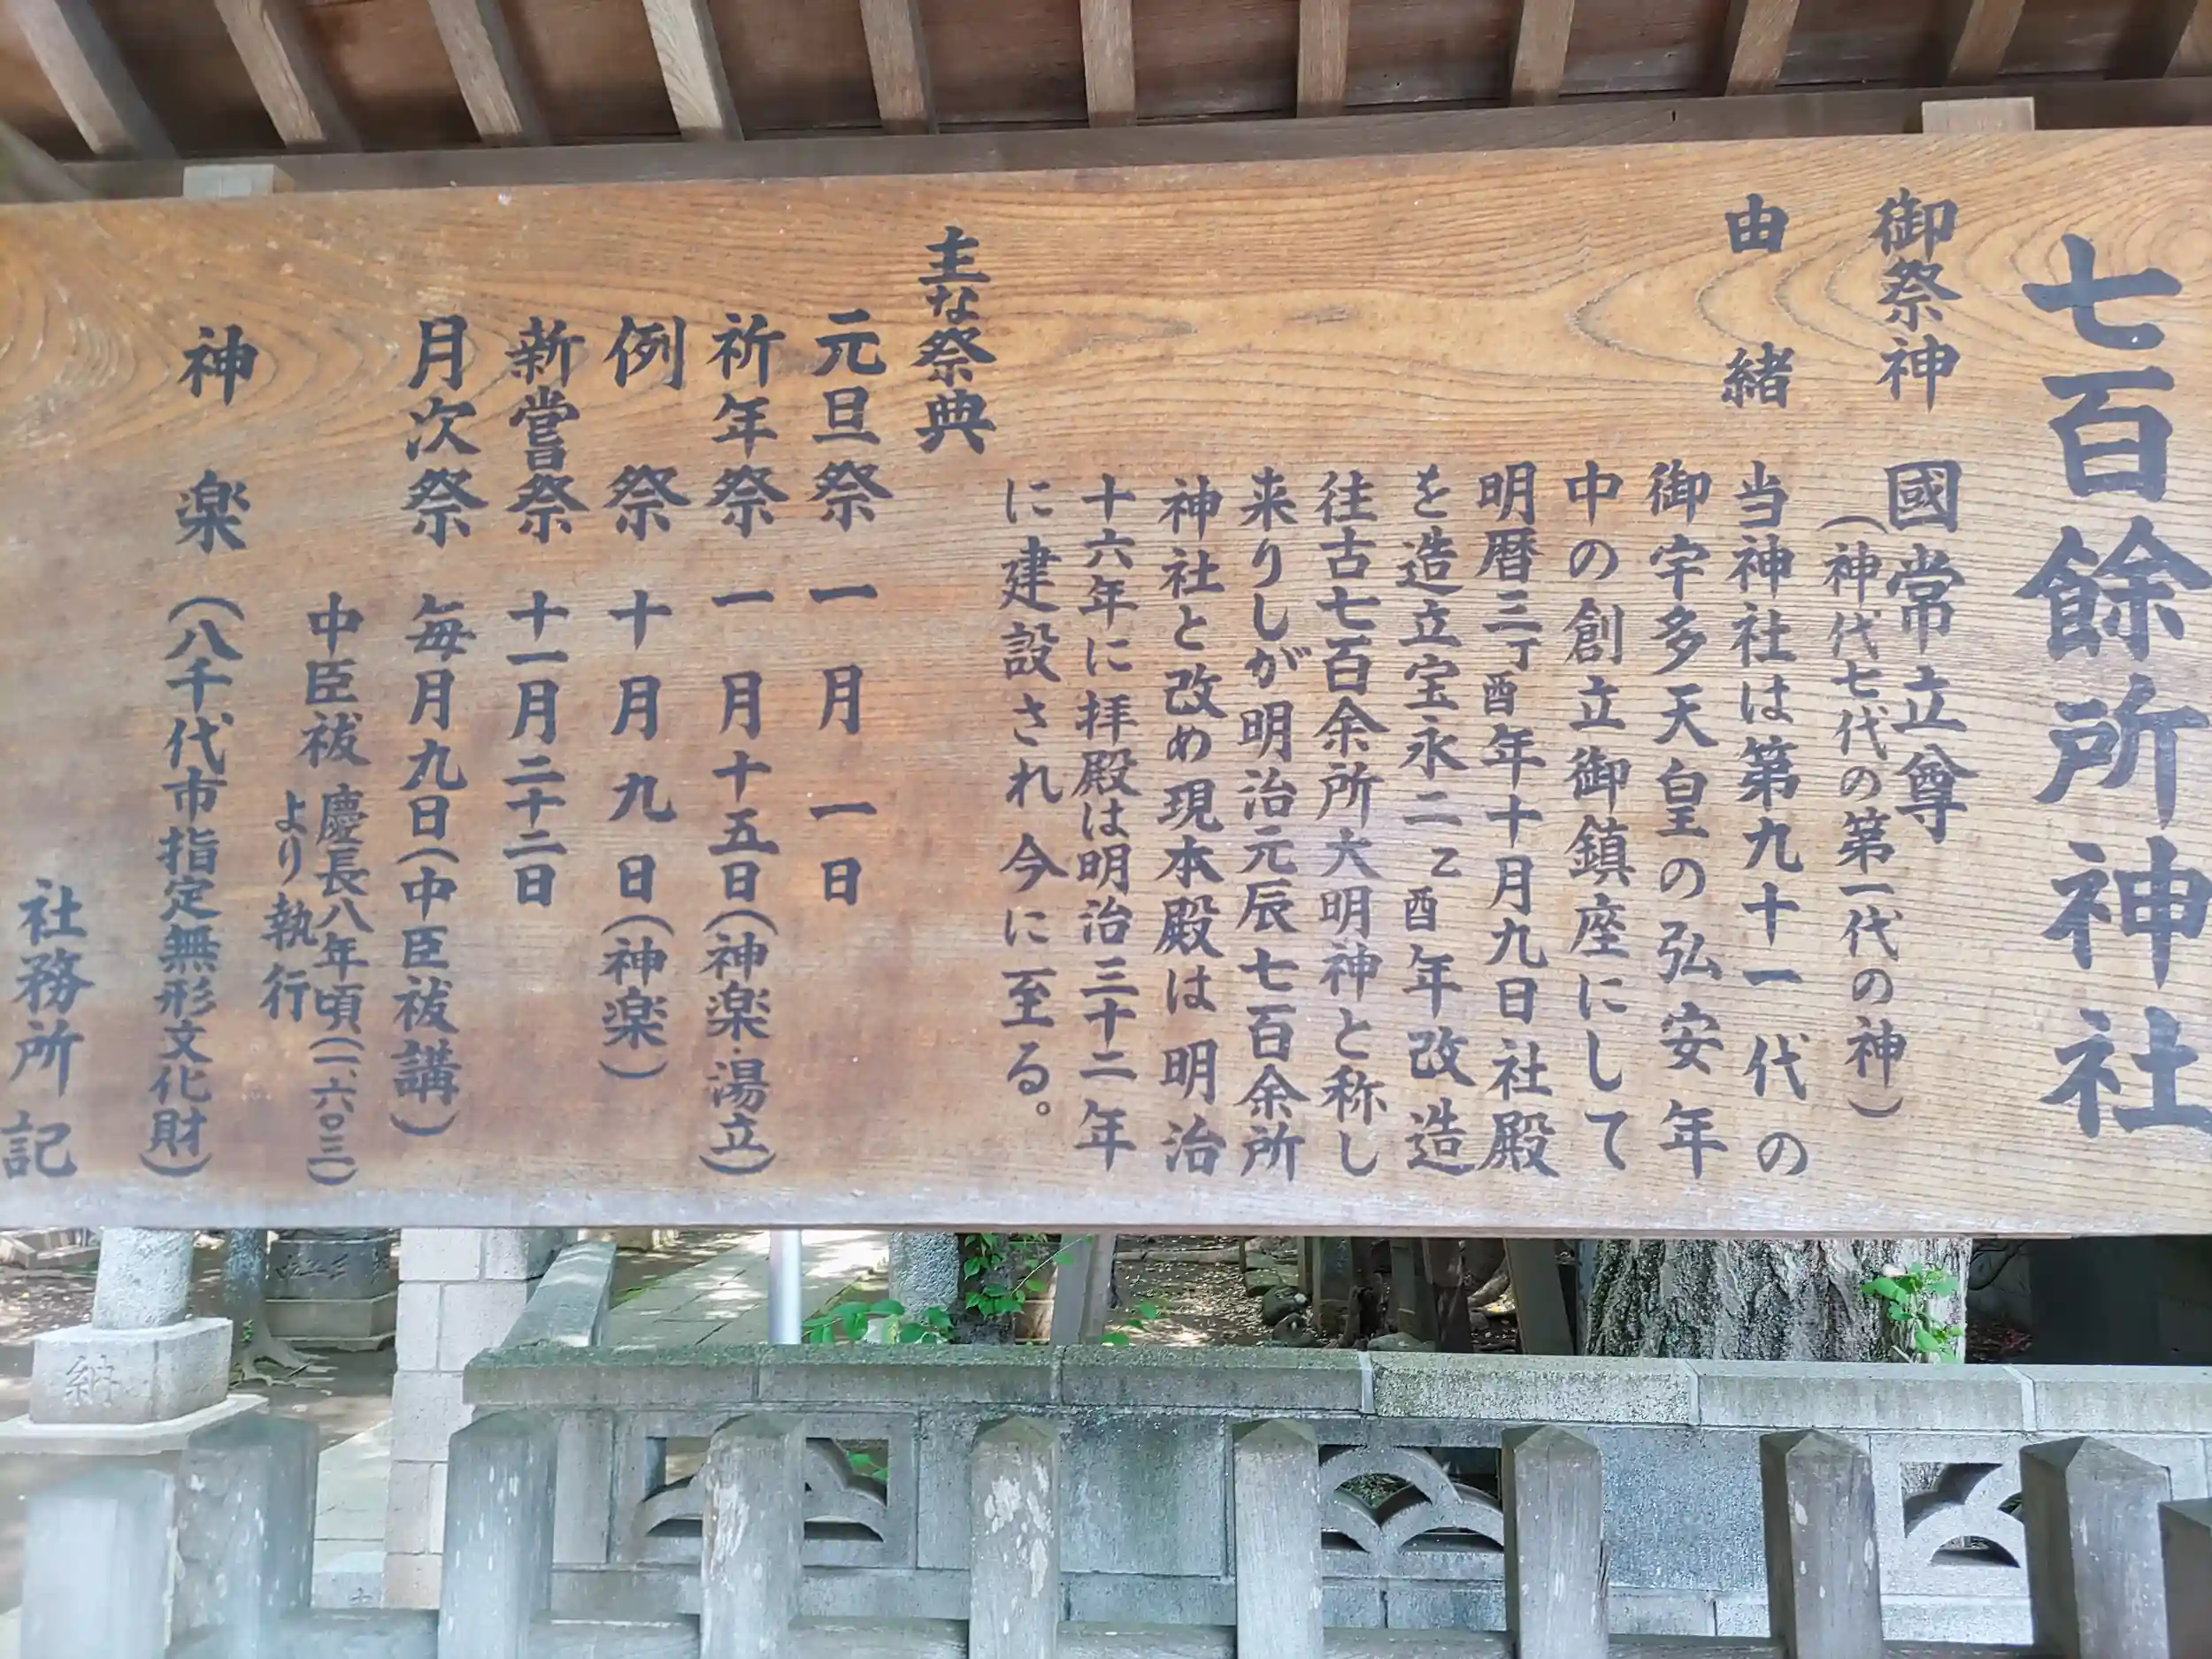 七百餘所神社
御祭神 國常立尊
(神代七代の第一代の神)
由緒 当神社は第九十一代の
御宇多天皇の弘安年
中の創立御鎮座にして
明暦三丁酉年十月九日社殿
を造立宝永二乙酉年改造
往古七百余所大明神と称し
来りしが明治元辰七百余所
神社と改め現本殿は明治
十六年に拝殿は明治三十二年
に建設され今に至る。
主な祭典
元旦祭 一月一日
祈年祭 一月十五日(神楽・湯立)
例祭 十月九日(神楽)
新嘗祭 十一月二十二日
月次祭 毎月九日(中臣祓講)
中臣祓 慶長八年頃(一、六〇三)
より執行
神楽 (八千代市指定無形文化財)
社務所記
納